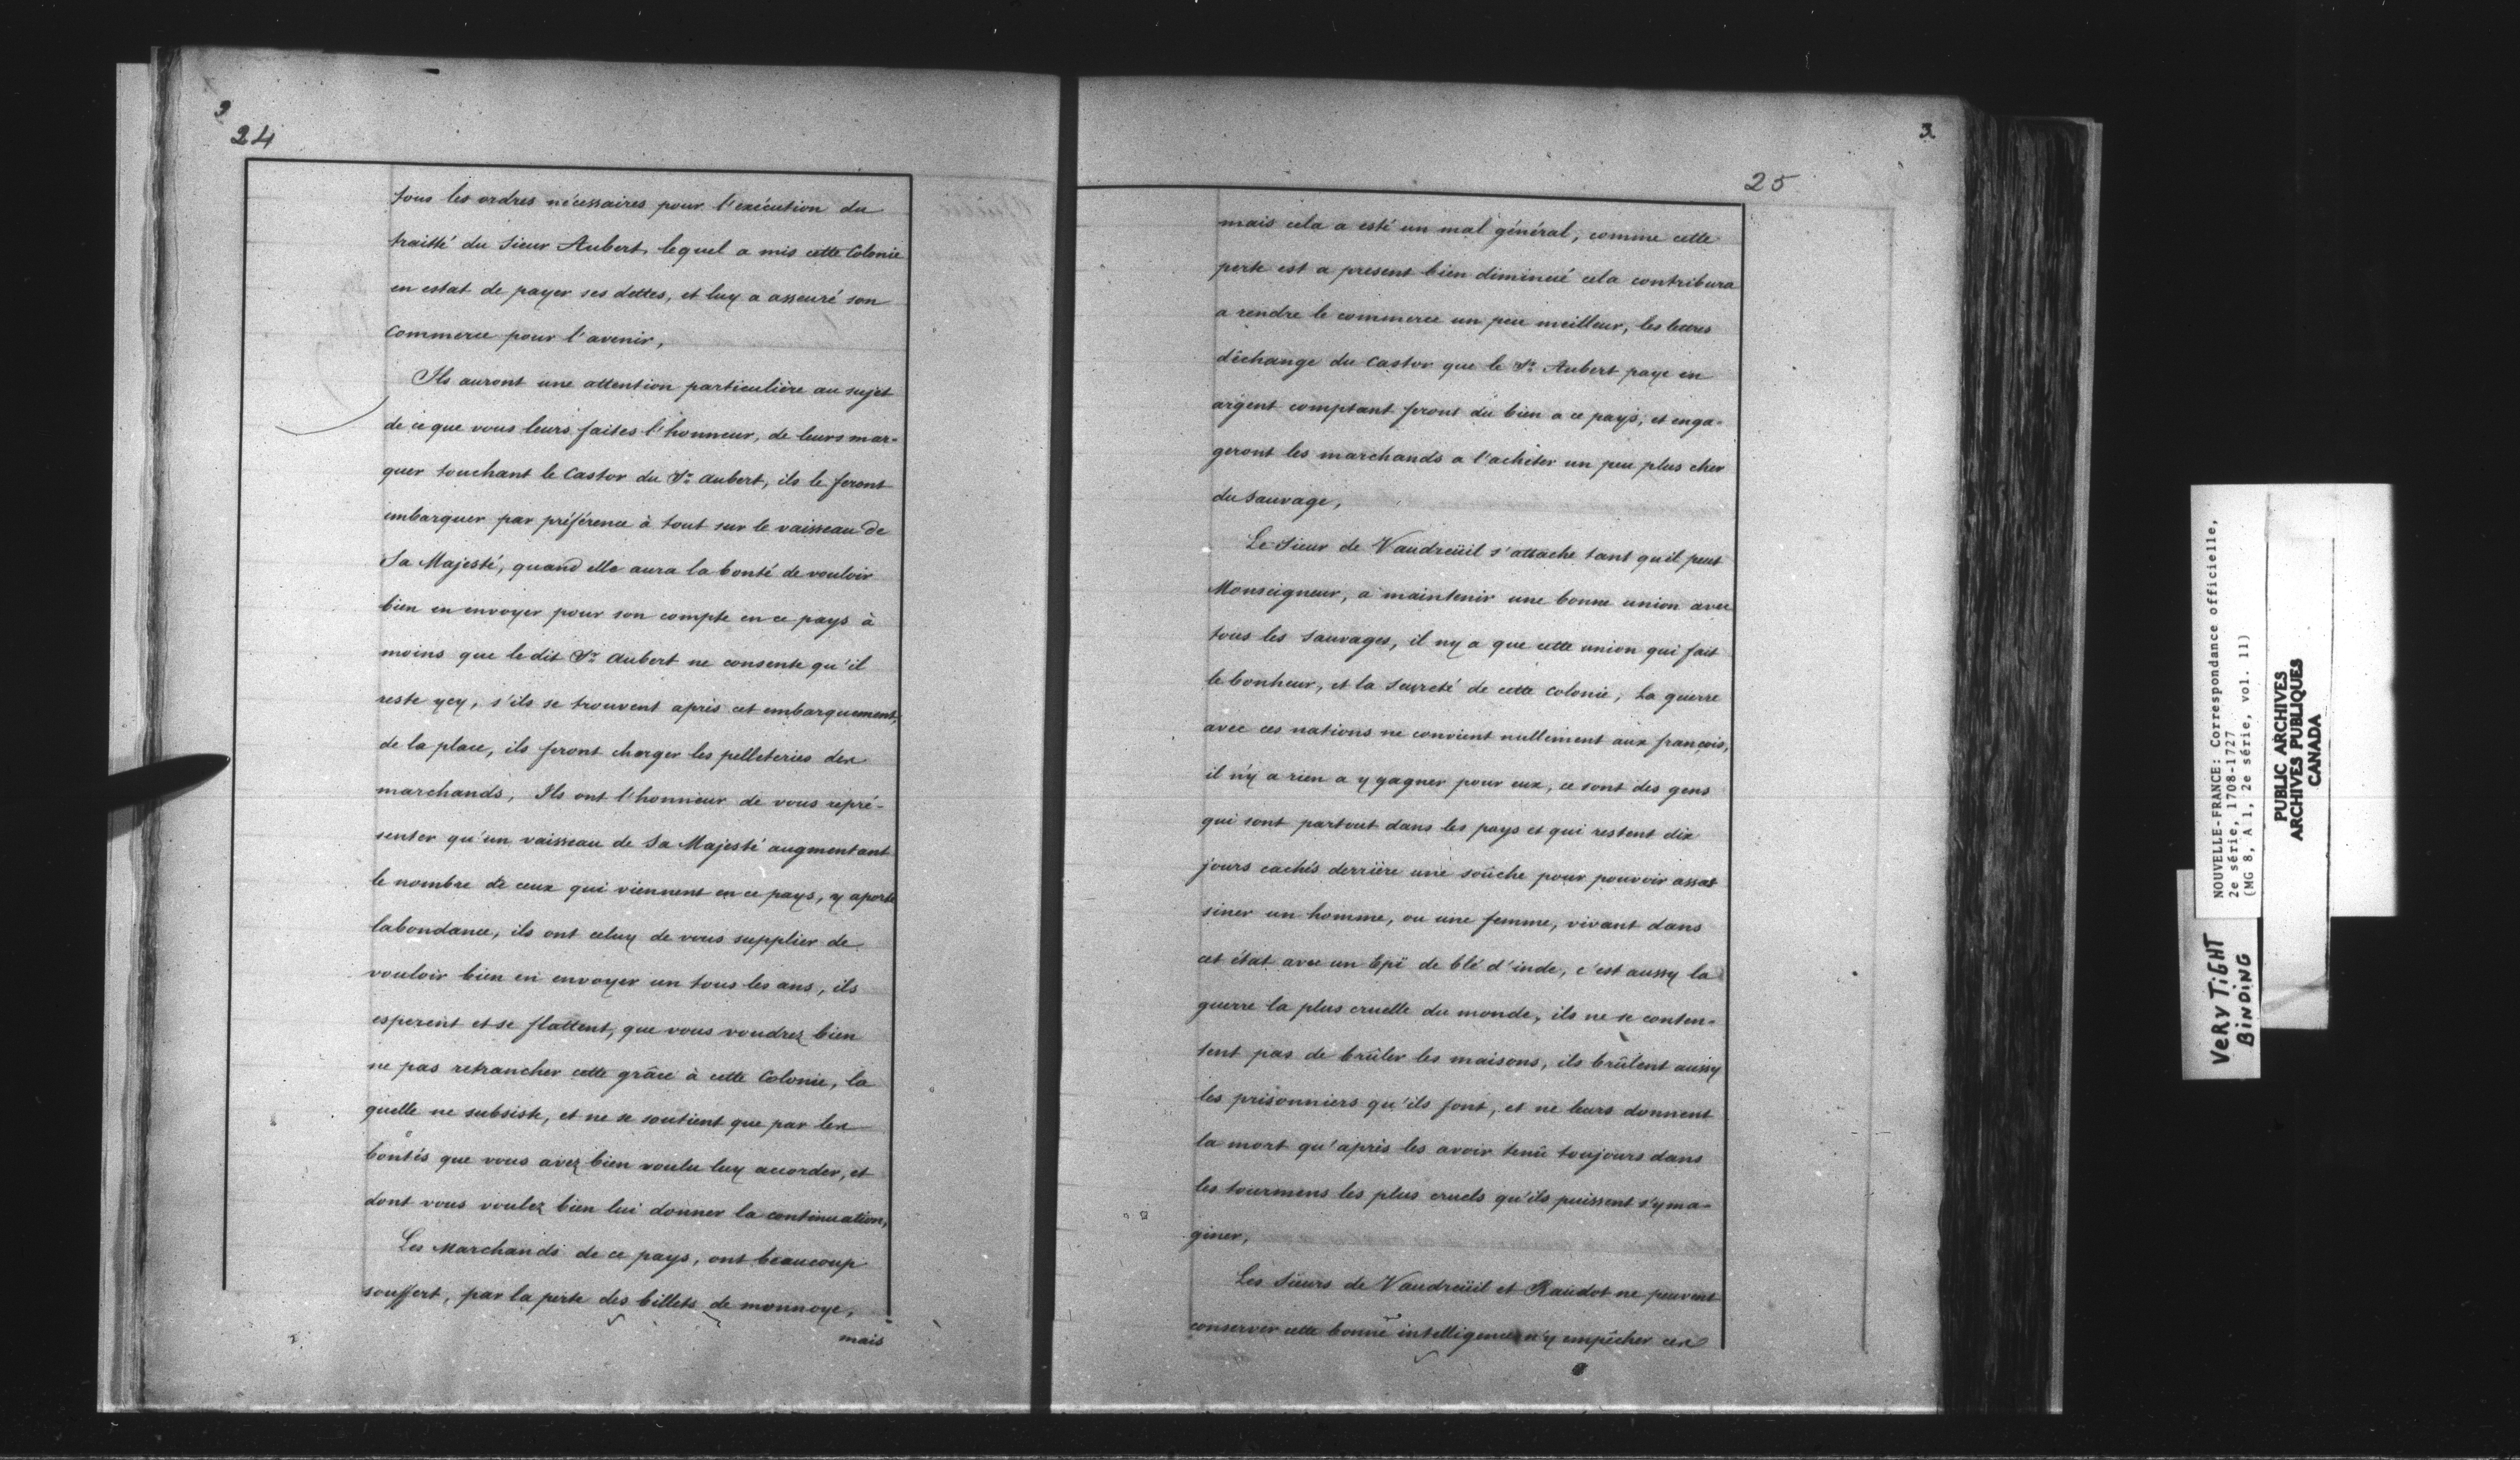 3
24
tous les ordres nécessaires pour l'exécution du
traitté du Sieur Aubert, lequel a mis cette Colonie
en estat de payer ses dettes, et luy a asseuré son
Commerce pour l'avenir,
Ils auront une attention particulière au sujet
de ce que vous leurs faites l'honneur, de leurs mar-
quer touchant le Castor du Sr. Aubert, ils le feront
embarquer par préférence à tout sur le vaisseau de
Sa Majesté, quand elle aura la bonté de vouloir
bien en envoyer pour son compte en ce pays à
moins que le dit Sr. Aubert ne consente qu'il
reste ycy, s'ils se trouvent après cet embarquement,
de la place, ils feront charger les pelleteries des
marchands, Ils ont l'honneur de vous repré-
senter qu'un vaisseau de Sa Majesté augmentant
le nombre de ceux qui viennent en ce pays, y aporte
labondance, ils ont celuy de vous supplier de
vouloir bien en envoyer un tous les ans, ils
esperent et se flattent, que vous voudrez bien
ne pas retrancher cette grâce à cette Colonie, la
quelle ne subsiste, et ne se soutient que par les
bontés que vous avez bien voulu luy accorder, et
dont vous voulez bien lui donner la continuation,
Les Marchands de ce pays, ont beaucoup
souffert, par la perte des billets de monnoye,
mais
3
25
mais cela a esté un mal général, comme cette
perte est a present bien diminué cela contribura
a rendre le commerce un peu meilleur, les lettres
d'échange du Castor que le Sr. Aubert paye en
argent comptant feront du bien a ce pays, et enga-
geront les marchands a l'acheter un peu plus cher
du Sauvage,
Le Sieur de Vaudreüil s'attache tant qu'il peut
Monseigneur, a maintenir une bonne union avec
tous les Sauvages, il ny a que cette union qui fait
le bonheur, et la Seureté de cette Colonie, La guerre
avec ces nations ne convient nullement aux françois,
il n'y a rien a y gagner pour eux, ce sont des gens
qui sont partout dans les pays et qui restent dix
jours cachés derrière une soûche pour pouvoir assas
siner un homme, ou une femme, vivant dans
cet état avec un Epï de blé d'inde, c'est aussy la
guerre la plus cruelle du monde, ils ne se conten-
tent pas de brûler les maisons, ils brûlent aussy
les prisonniers qu'ils font, et ne leurs donnent
la mort qu'après les avoir tenû toujours dans
les tourmens les plus cruels qu'ils puissent s'yma-
giner,
Les Sieurs de Vaudreüil et Raudot ne peuvent
conserver cette bonne intelligence n'y empêcher ces
NOUVELLE-FRANCE: Correspondance officielle,
2e série, 1708-1727
(MG 8, A 1, 2e série, vol. 11)
PUBLIC ARCHIVES
ARCHIVES PUBLIQUES
CANADA
VERY TIGHT
BINDING